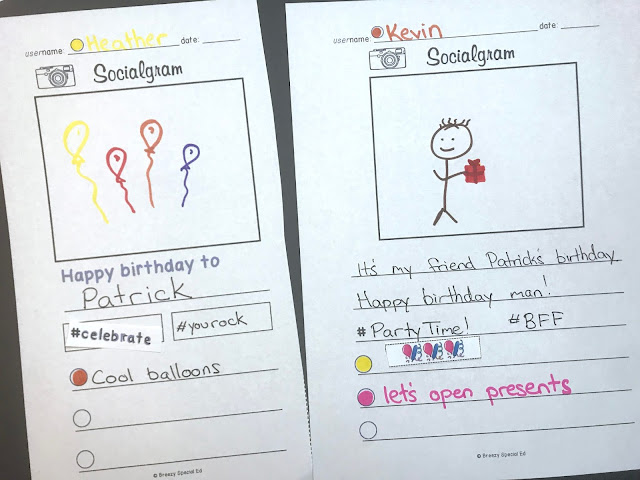 username: Heather date:
Socialgram
Happy birthday to
Patrick
#celebrate #yourock
Cool balloons
© Breezy Special Ed
username Kevin date:
Socialgram
It's my friend Patrick's birthday
Happy birthday man!
#PartyTime! #BFF
let's open presents
© Breezy Special Ed